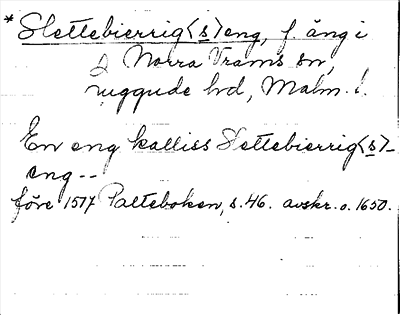 * Slettebierrig<s>eng, f. äng i
Norra Vrams sn,
Luggude hd, Malm. l.
En eng kalliss Slettebierrig<s>-
eng --
före 1517 Palteboken, s. 46. avskr. o. 1650.